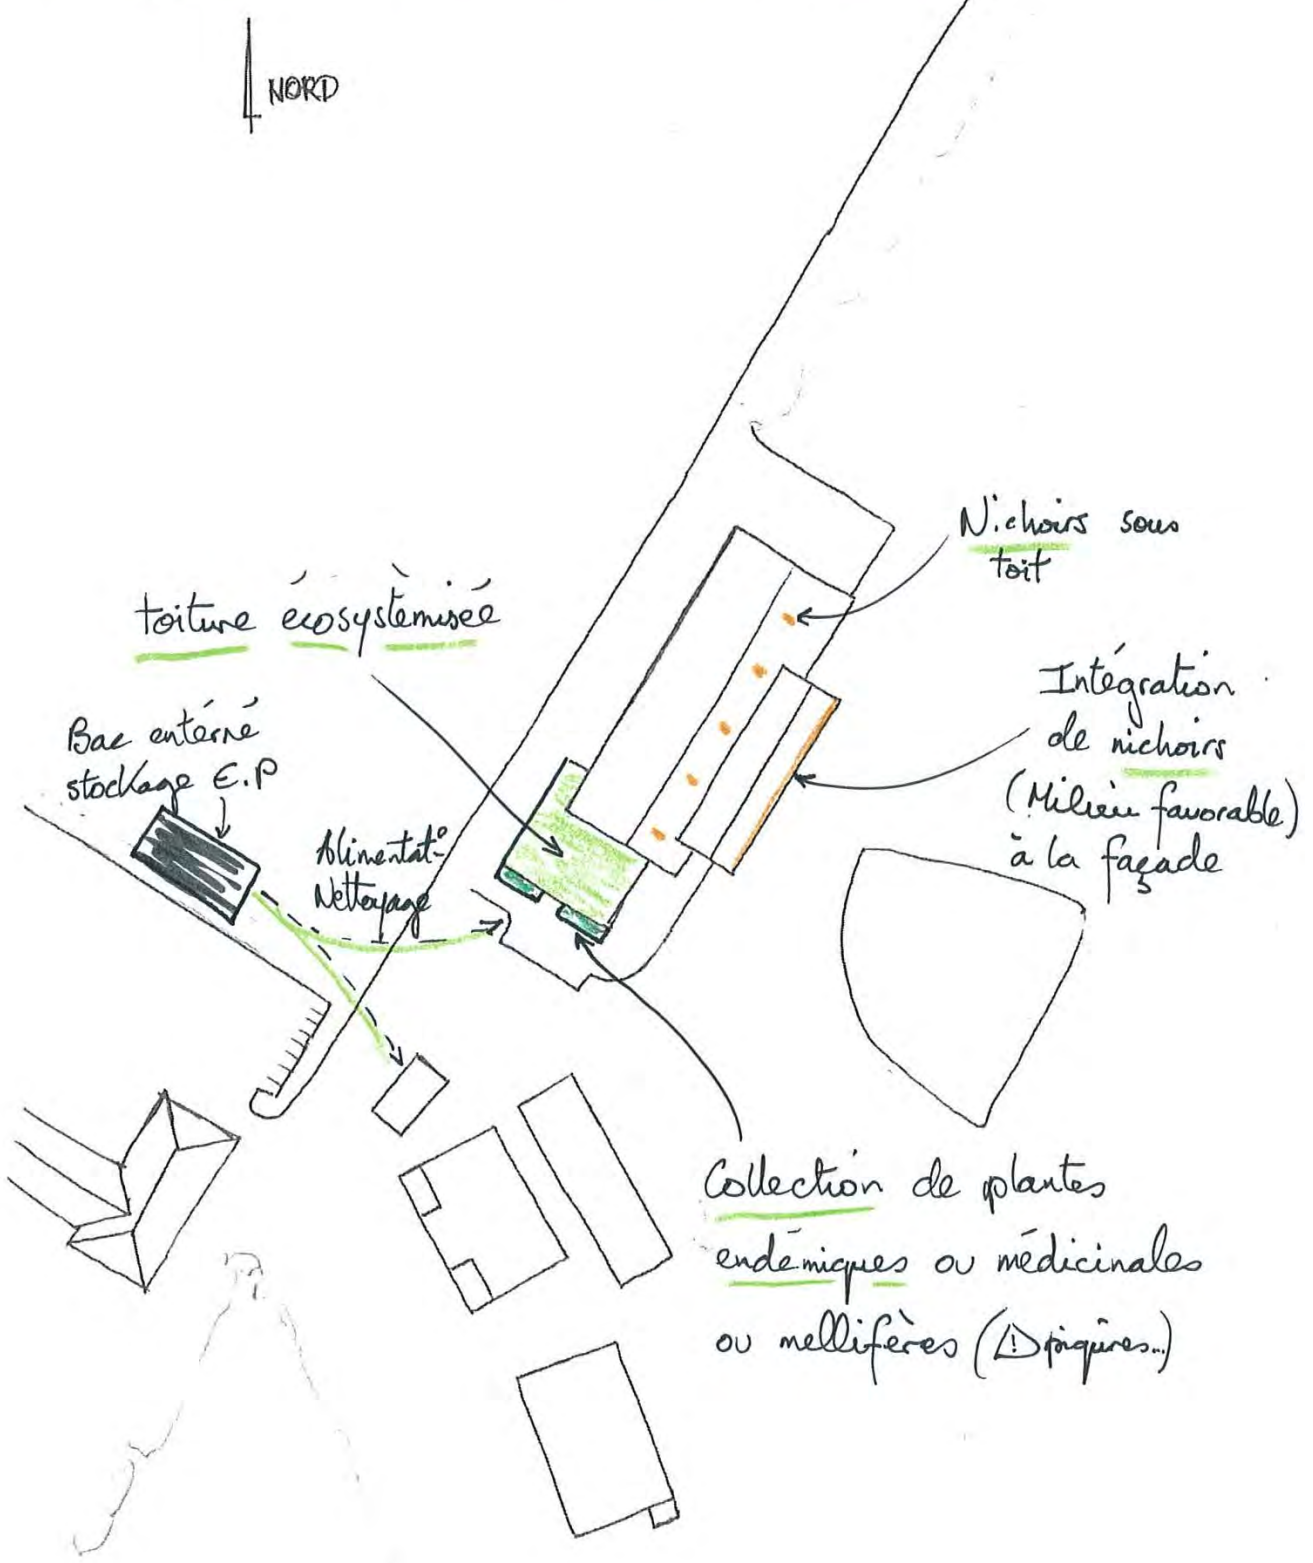 NORD
Nichoirs sous
toit
toiture écosystèmisée
Intégration
de nichoirs
(Milieu favorable)
à la façade
Bac entérré
stockage E.P
Alimentat°
Nettoyage
Collection de plantes
endémiques ou médicinales
ou mellifères (⚠ piqûres...)